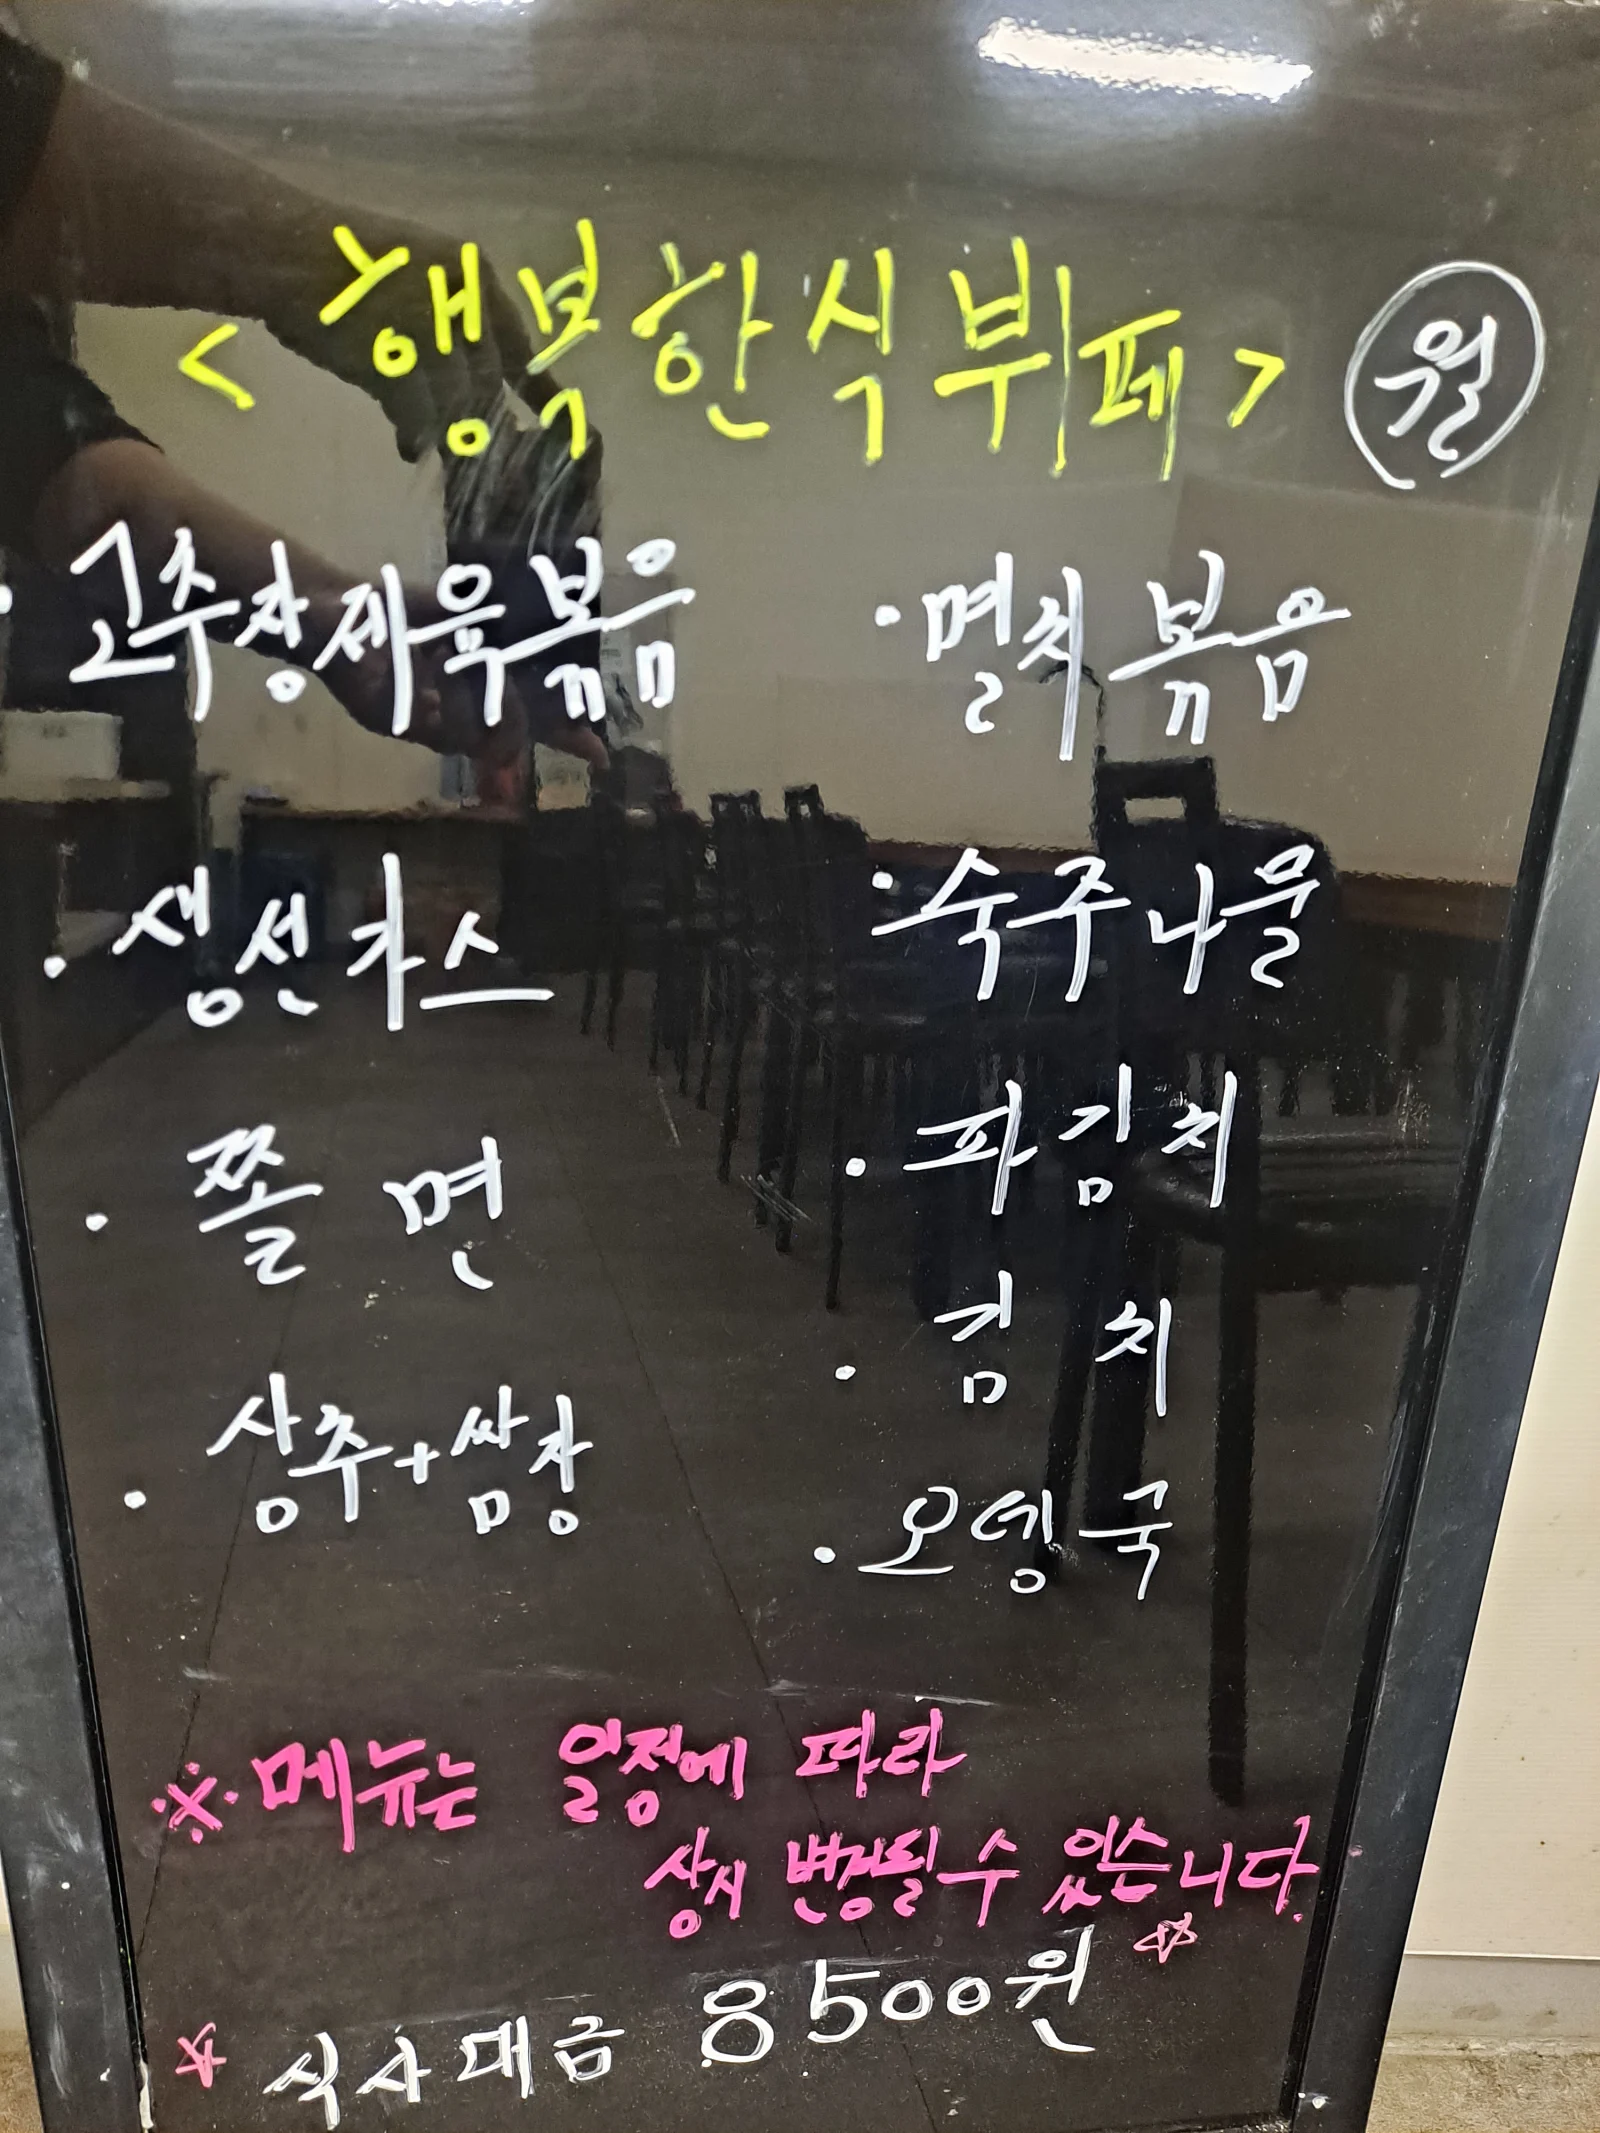 <행복한식뷔페> 월
· 고추장제육볶음
· 생선까스
· 쫄면
· 상추+쌈장
· 멸치볶음
· 숙주나물
· 파김치
· 김치
· 오뎅국
※메뉴는 일정에 따라
상시 변경될 수 있습니다.
☆ 식사대금 8500원 ☆